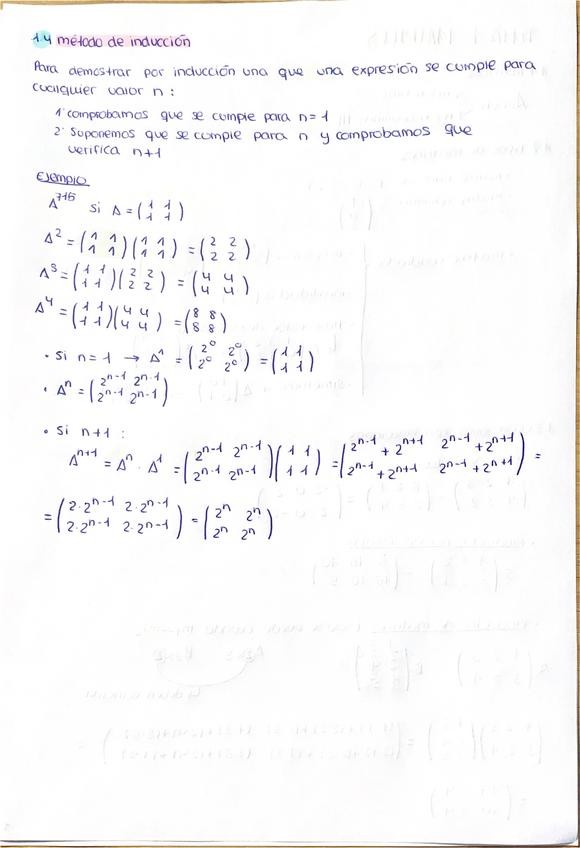 1.4 método de inducción
Para demostrar por inducción una que una expresión se cumple para
cualquier valor n :
1º comprobamos que se cumple para n=1
2º Suponemos que se cumple para n y comprobamos que
verifica n+1
Ejemplo
A^715 si A = (1 1; 1 1)
A^2 = (1 1; 1 1)(1 1; 1 1) = (2 2; 2 2)
A^3 = (1 1; 1 1)(2 2; 2 2) = (4 4; 4 4)
A^4 = (1 1; 1 1)(4 4; 4 4) = (8 8; 8 8)
· Si n=1 → A^1 = (2^0 2^0; 2^0 2^0) = (1 1; 1 1)
· A^n = (2^n-1 2^n-1; 2^n-1 2^n-1)
· Si n+1 :
A^n+1 = A^n · A^1 = (2^n-1 2^n-1; 2^n-1 2^n-1)(1 1; 1 1) = (2^n-1 + 2^n+1 2^n-1 + 2^n+1; 2^n-1 + 2^n+1 2^n-1 + 2^n+1) =
= (2·2^n-1 2·2^n-1; 2·2^n-1 2·2^n-1) = (2^n 2^n; 2^n 2^n)